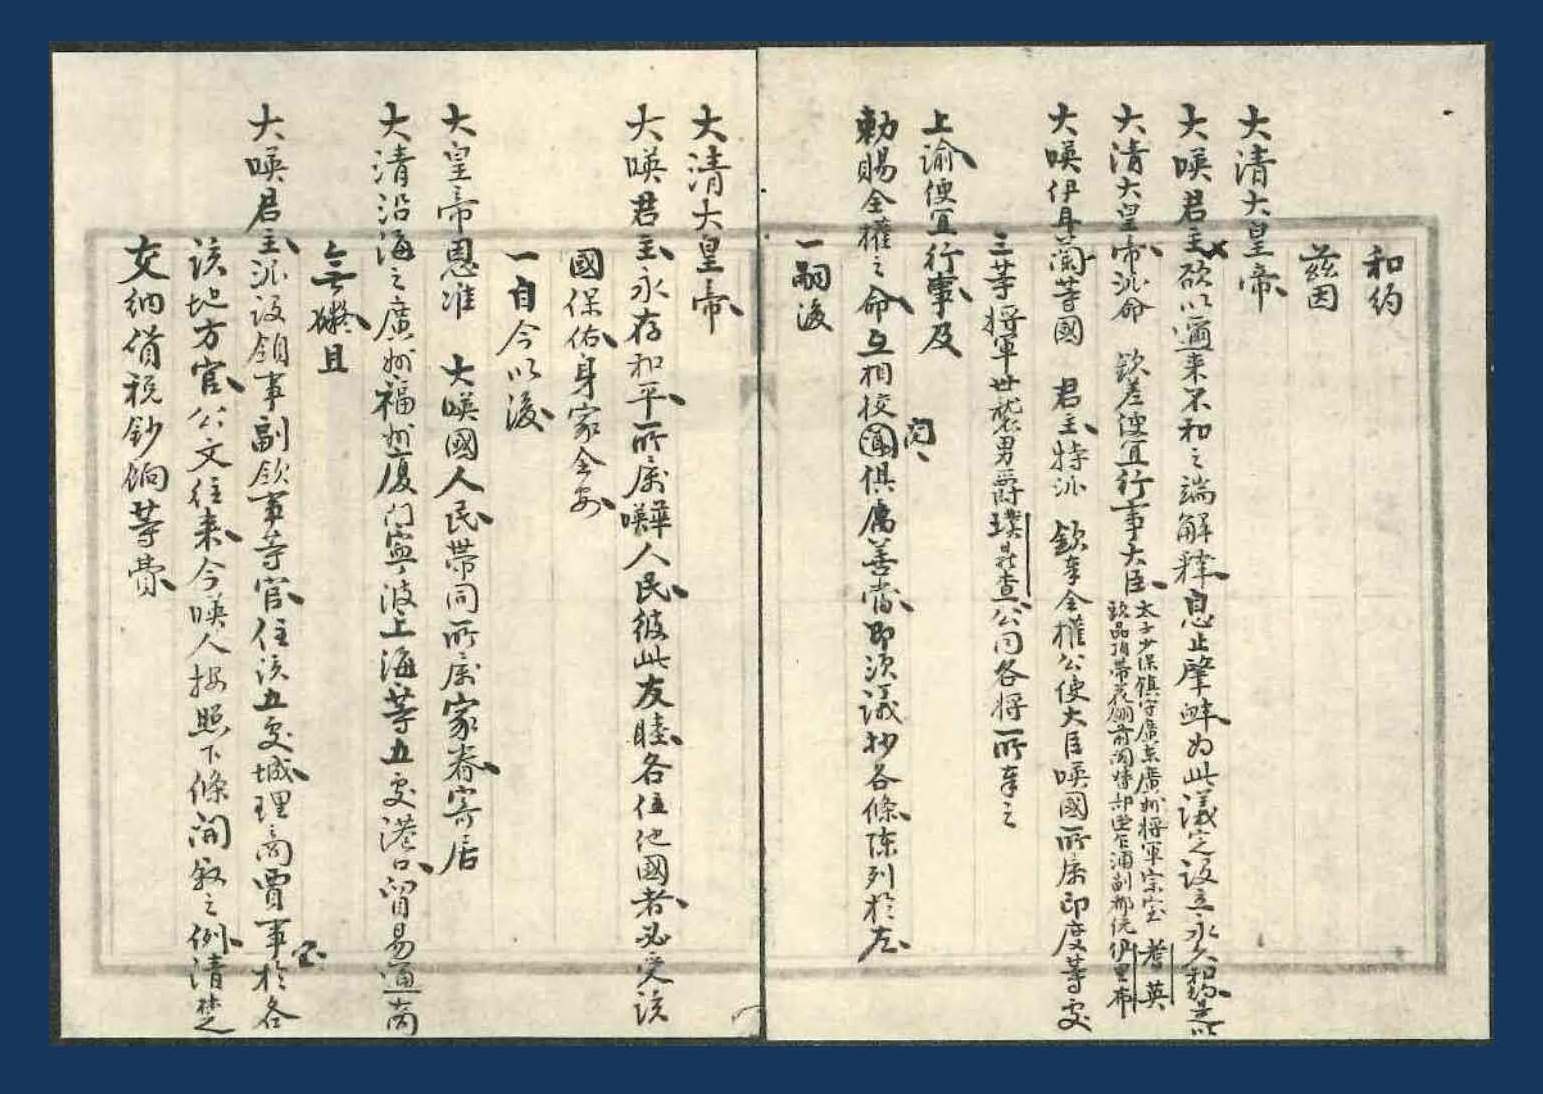 和約
茲因
大清大皇帝
大暎君主欲以邇來不和之端解釋息止肇衅為此議定設立永久和約是以
大清大皇帝派命 欽差便宜行事大臣太子少保鎮守廣東廣州將軍宗室耆英
頭品頂帶花翎前閣督部堂乍浦副都統伊里布
大暎伊耳蘭等國 君主特派 欽奉全權公使大臣暎國所屬印度等處
三等將軍世襲男爵璞鼎查公同各將所奉之
上諭便宜行事及
勅賜全權之命互相校閱俱屬善當即須議抄各條陳列於左
一嗣後
大清大皇帝
大暎君主永存和平所屬華暎人民彼此友睦各住他國者必受該
國保佑身家全安
一自今以後
大皇帝恩准 大暎國人民帶同所屬家眷寄居
大清沿海之廣州福州厦门寧波上海等五處港口貿易通商
無礙且
大暎君主派設領事副領事等官住該五處城理商賈事宜於各
該地方官公文往来今暎人按照下條開敘之例清楚
交納貨税鈔餉等費